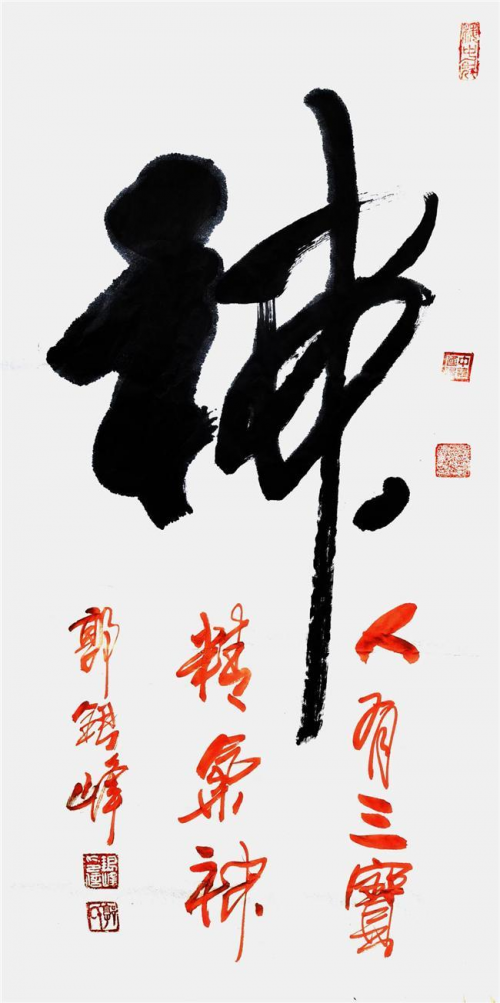 神
人有三寶
精氣神
郭 峰